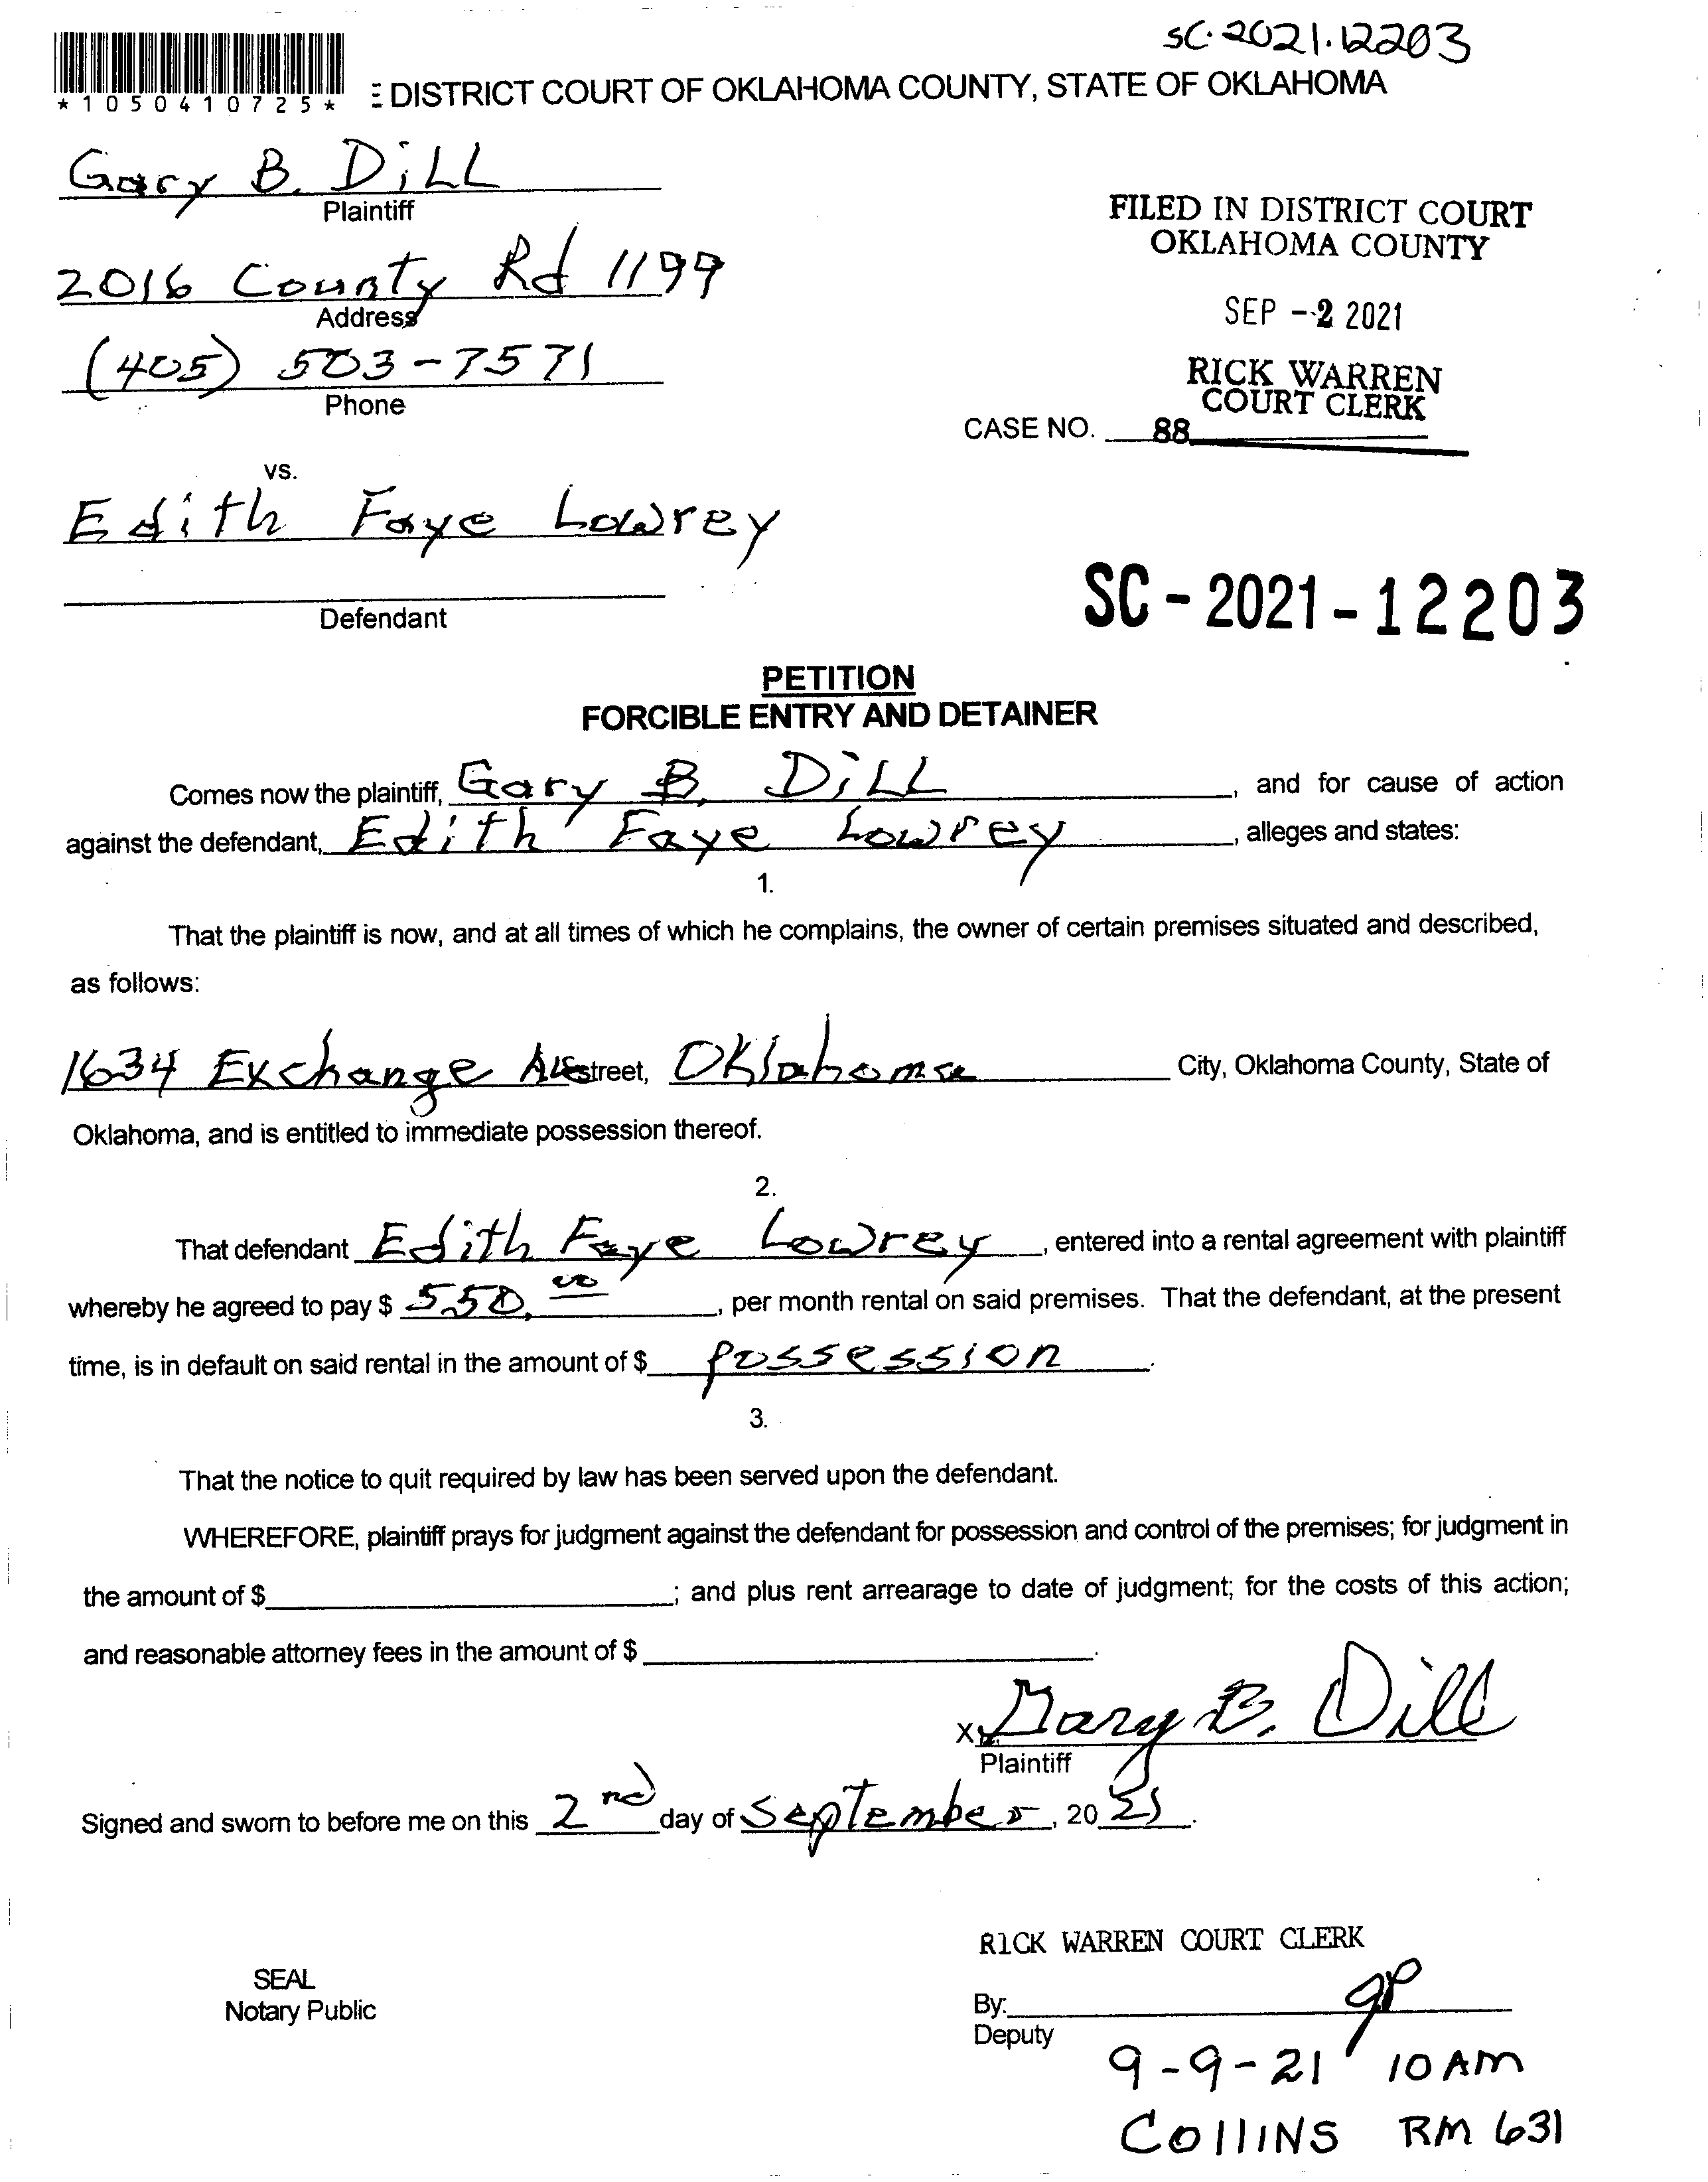 SC-2021-12203
*1050410725*
E DISTRICT COURT OF OKLAHOMA COUNTY, STATE OF OKLAHOMA
Gary B. Dill
Plaintiff
FILED IN DISTRICT COURT
OKLAHOMA COUNTY
2016 County Rd 1199
Address
SEP -2 2021
(405) 503-7571
Phone
RICK WARREN
COURT CLERK
CASE NO. 88
vs.
Edith Faye Lowrey
Defendant
SC-2021-12203
PETITION
FORCIBLE ENTRY AND DETAINER
Comes now the plaintiff, Gary B. Dill, and for cause of action
against the defendant, Edith Faye Lowrey, alleges and states:
1.
That the plaintiff is now, and at all times of which he complains, the owner of certain premises situated and described,
as follows:
1634 Exchange Ave street, Oklahoma City, Oklahoma County, State of
Oklahoma, and is entitled to immediate possession thereof.
2.
That defendant Edith Faye Lowrey, entered into a rental agreement with plaintiff
whereby he agreed to pay $ 550.00, per month rental on said premises. That the defendant, at the present
time, is in default on said rental in the amount of $ possession.
3.
That the notice to quit required by law has been served upon the defendant.
WHEREFORE, plaintiff prays for judgment against the defendant for possession and control of the premises; for judgment in
the amount of $ ; and plus rent arrearage to date of judgment; for the costs of this action;
and reasonable attorney fees in the amount of $ .
X Gary B. Dill
Plaintiff
Signed and sworn to before me on this 2nd day of September, 2021.
RICK WARREN COURT CLERK
SEAL
Notary Public
By: gp
Deputy
9-9-21 10 AM
Collins RM 631